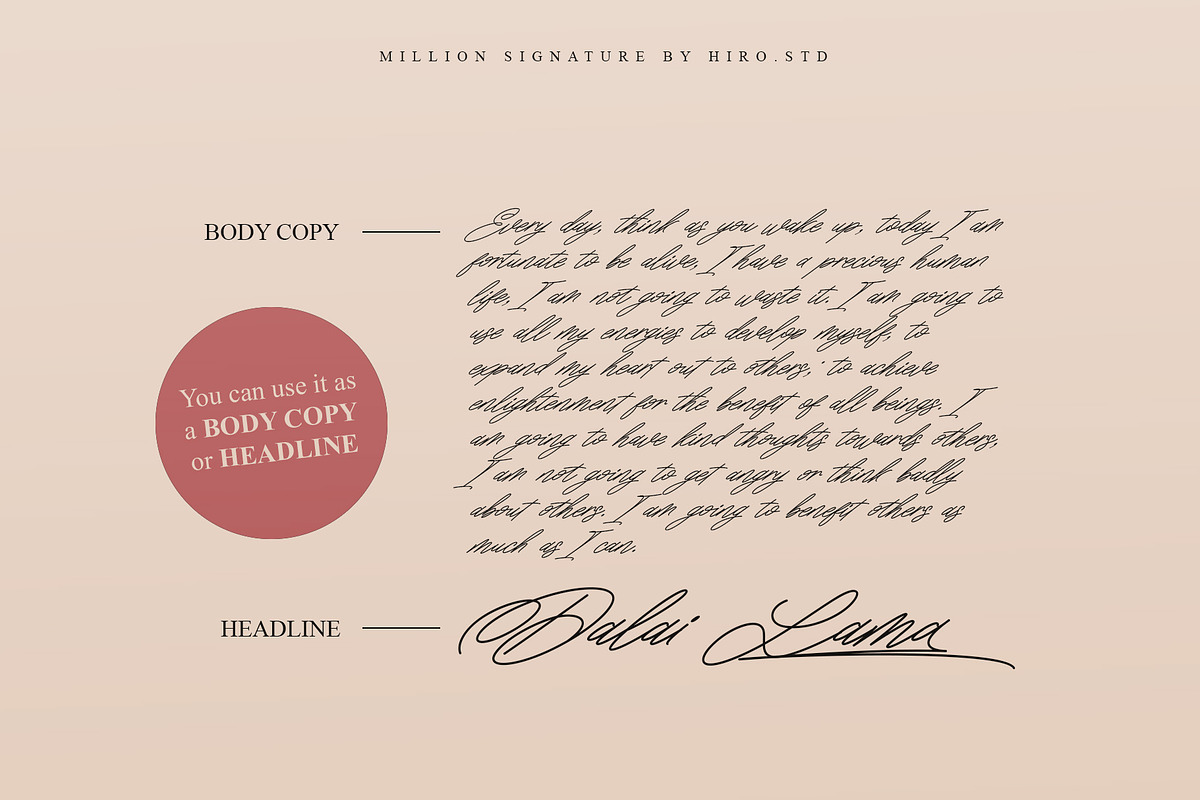 MILLION SIGNATURE BY HIRO.STD
BODY COPY
Every day, think as you wake up, today I am
fortunate to be alive, I have a precious human
life, I am not going to waste it. I am going to
use all my energies to develop myself, to
expand my heart out to others; to achieve
enlightenment for the benefit of all beings. I
am going to have kind thoughts towards others,
I am not going to get angry or think badly
about others. I am going to benefit others as
much as I can.
You can use it as
a BODY COPY
or HEADLINE
HEADLINE
Dalai Lama